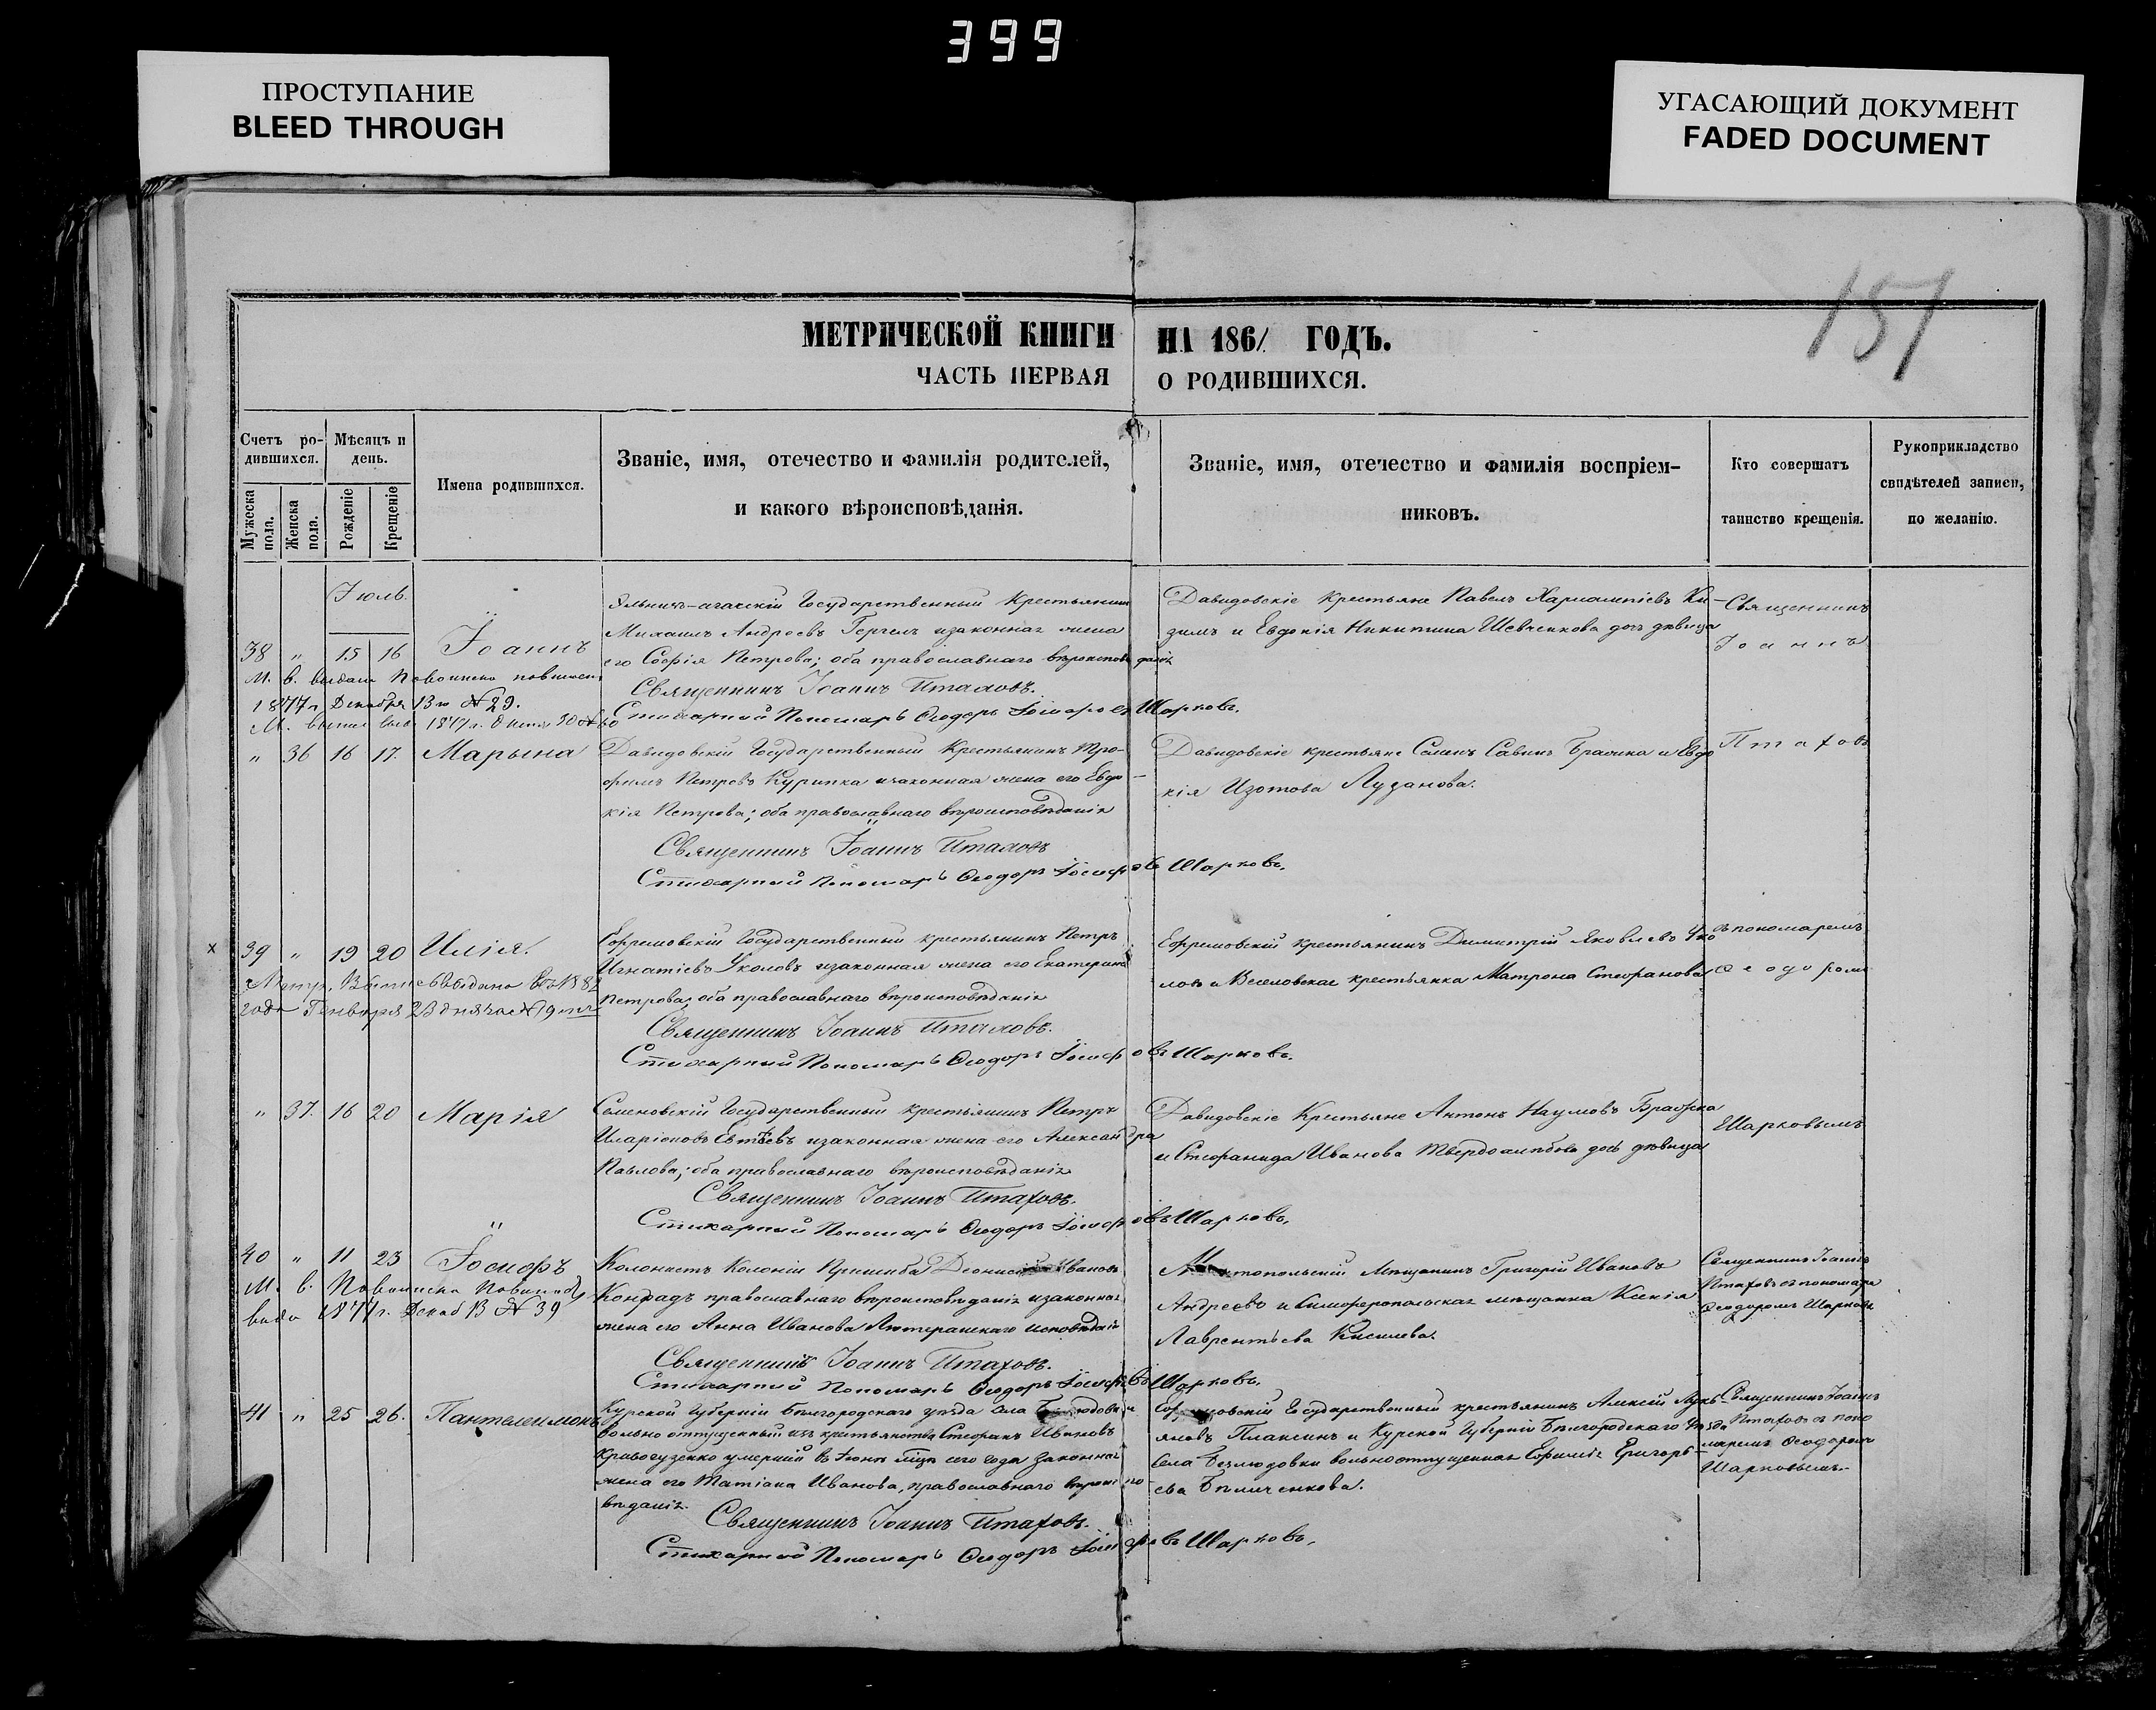 399
ПРОСТУПАНИЕ
BLEED THROUGH
УГАСАЮЩИЙ ДОКУМЕНТ
FADED DOCUMENT
151
МЕТРИЧЕСКОЙ КНИГИ НА 1861 ГОДЪ.
ЧАСТЬ ПЕРВАЯ О РОДИВШИХСЯ.
Счетъ ро-
дившихся.
Мужеска
пола.
Женска
пола.
Мѣсяцъ и
день.
Рожденіе
Крещеніе
Имена родившихся.
Званіе, имя, отечество и фамилія родителей,
и какого вѣроисповѣданія.
Званіе, имя, отечество и фамилія воспріем-
никовъ.
Кто совершатъ
таинство крещенія.
Рукоприкладство
свидѣтелей записи,
по желанію.
Іюль.
38 " 15 16 Іоаннъ
Государственный Крестьянинъ
Михаилъ Андреевъ Гергель изаконная жена
его Софія Петрова; оба православнаго вѣроисповѣданія
Священникъ Іоаннъ Птаховъ.
Стихарный Пономарь Ѳеодоръ Іосифовъ Шарковъ.
М. в. выдана
1877 г. Декабря 13 го № 29.
Давидовскіе крестьяне Павелъ Харлампіевъ Ки-
зимъ и Евдокія Никитина Шевченкова дочь дѣвица
Священникъ
Іоаннъ
" 36 16 17. Марѵна
Давидовскій Государственный Крестьянинъ Тро-
фимъ Петровъ Курипка изаконная жена его Евдо-
кія Петрова; оба православнаго вѣроисповѣданія
Священникъ Іоаннъ Птаховъ
Стихарный Пономарь Ѳеодоръ Іосифовъ Шарковъ.
Давидовскіе крестьяне Савинъ и Евдо
кія Изотова Лузанова.
Птаховъ
х 39 " 19 20 Илія.
Ефремовскій Государственный крестьянинъ Петръ
Игнатіевъ Уколовъ изаконная жена его Екатерина
Петрова; оба православнаго вѣроисповѣданія
Священникъ Іоаннъ Птаховъ.
Стихарный Пономарь Ѳеодоръ Іосифовъ Шарковъ.
года Генваря 23 дня за № 19
Ефремовскій крестьянинъ Димитрій Яковлевъ Уко
ловъ и Веселовская крестьянка Матрона Стефанова
съ пономаремъ
Ѳеодоромъ
" 37. 16 20 Марія
Семеновскій Государственный крестьянинъ Петръ
Иларіоновъ изаконная жена его Александра
Павлова; оба православнаго вѣроисповѣданія
Священникъ Іоаннъ Птаховъ.
Стихарный Пономарь Ѳеодоръ Іосифовъ Шарковъ.
Давидовскіе Крестьяне Антонъ Наумовъ
и Стефанида Иванова дочь дѣвица
Шарковымъ
40 " 11 23 Іосифъ
Колонистъ Колоніи Пришибъ Діонисій Ивановъ
Конрадъ православнаго вѣроисповѣданія изаконная
жена его Анна Иванова Лютеранскаго исповѣданія
Священникъ Іоаннъ Птаховъ.
Стихарный Пономарь Ѳеодоръ Іосифовъ Шарковъ.
М. в.
1877 г. Декаб 13 № 39
Мѣщанинъ Григорій Ивановъ
Андреевъ и Симферопольская мѣщанка Ксенія
Лаврентьева Киселева.
Священникъ Іоаннъ
Птаховъ съ пономаре
Ѳеодоромъ Шарков
41 " 25 26. Пантелеимонъ
Курской Губерніи Бѣлгородскаго уѣзда Села
вольно отпущенный изъ крестьянства Стефанъ Ивановъ
умершій въ Іюнѣ сего года законная
жена его Татіана Иванова, православнаго вѣроиспо-
вѣданія.
Священникъ Іоаннъ Птаховъ.
Стихарный Пономарь Ѳеодоръ Іосифовъ Шарковъ.
Государственный крестьянинъ Алексій Лукь-
яновъ Плаксинъ и Курской Губерніи Бѣлгородскаго Уѣзда
Села Безлюдовки вольноотпущенная Евфимія Григорь-
ева
Священникъ Іоаннъ
Птаховъ съ поно
маремъ Ѳеодоромъ
Шарковымъ.